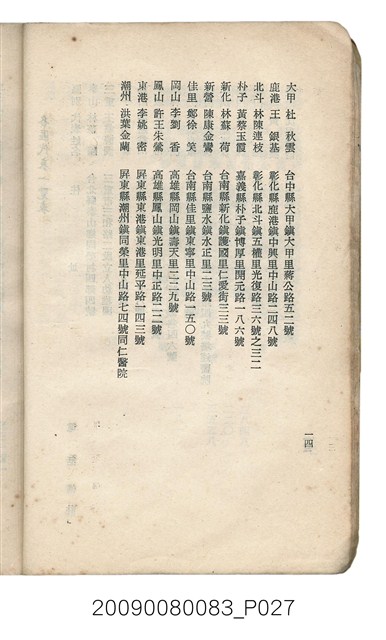 大甲 杜秋雲 台中縣大甲鎮大甲里蔣公路五二號
鹿港 王銀基 彰化縣鹿港鎮中興里中山路二四八號
北斗 林陳連枝 彰化縣北斗鎮五權里光復路三六號之三二
朴子 黃蔡玉霞 嘉義縣朴子鎮博厚里開元路一八六號
新化 林蘇荷 台南縣新化鎮護國里仁愛街三三號
新營 陳康金鸞 台南縣鹽水鎮水正里二三號
佳里 鄭徐笑 台南縣佳里鎮東寧里中山路一五〇號
岡山 李劉香 高雄縣岡山鎮壽天里二二九號
鳳山 許王朱鶯 高雄縣鳳山鎮光明里中正路二二號
東港 李姚密 屏東縣東港鎮東港里延平路一四三號
潮州 洪葉金蘭 屏東縣潮州鎮同榮里中山路七四號同仁醫院
一四
20090080083_P027